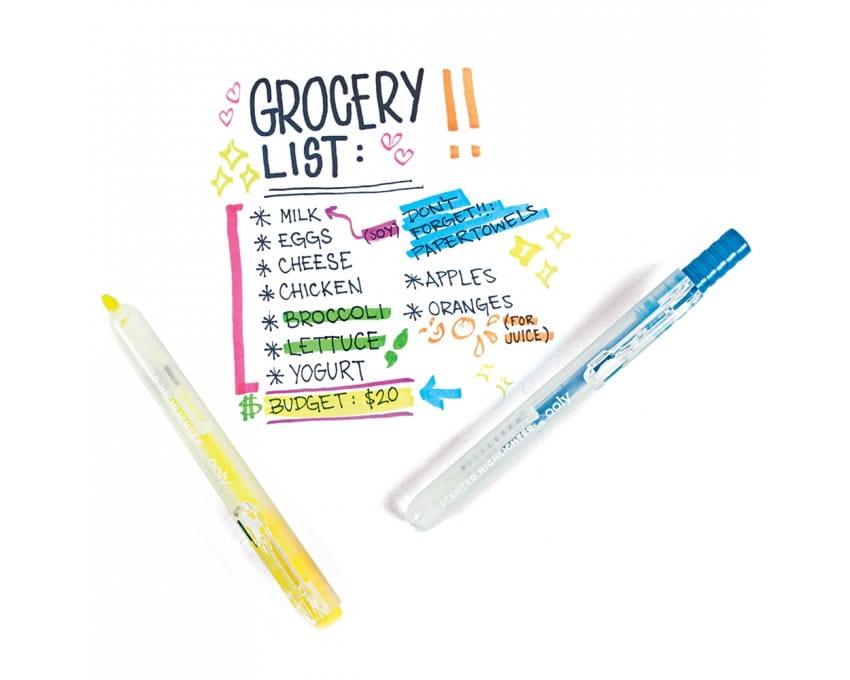 GROCERY
LIST:
!!
* MILK
(SOY)
* EGGS
* CHEESE
* CHICKEN
* BROCCOLI
* LETTUCE
* YOGURT
$ BUDGET: $20
DON'T
FORGET!!:
PAPERTOWELS
* APPLES
* ORANGES
(FOR
JUICE)
ooly
SCENTED HIGHLIGHTER ooly